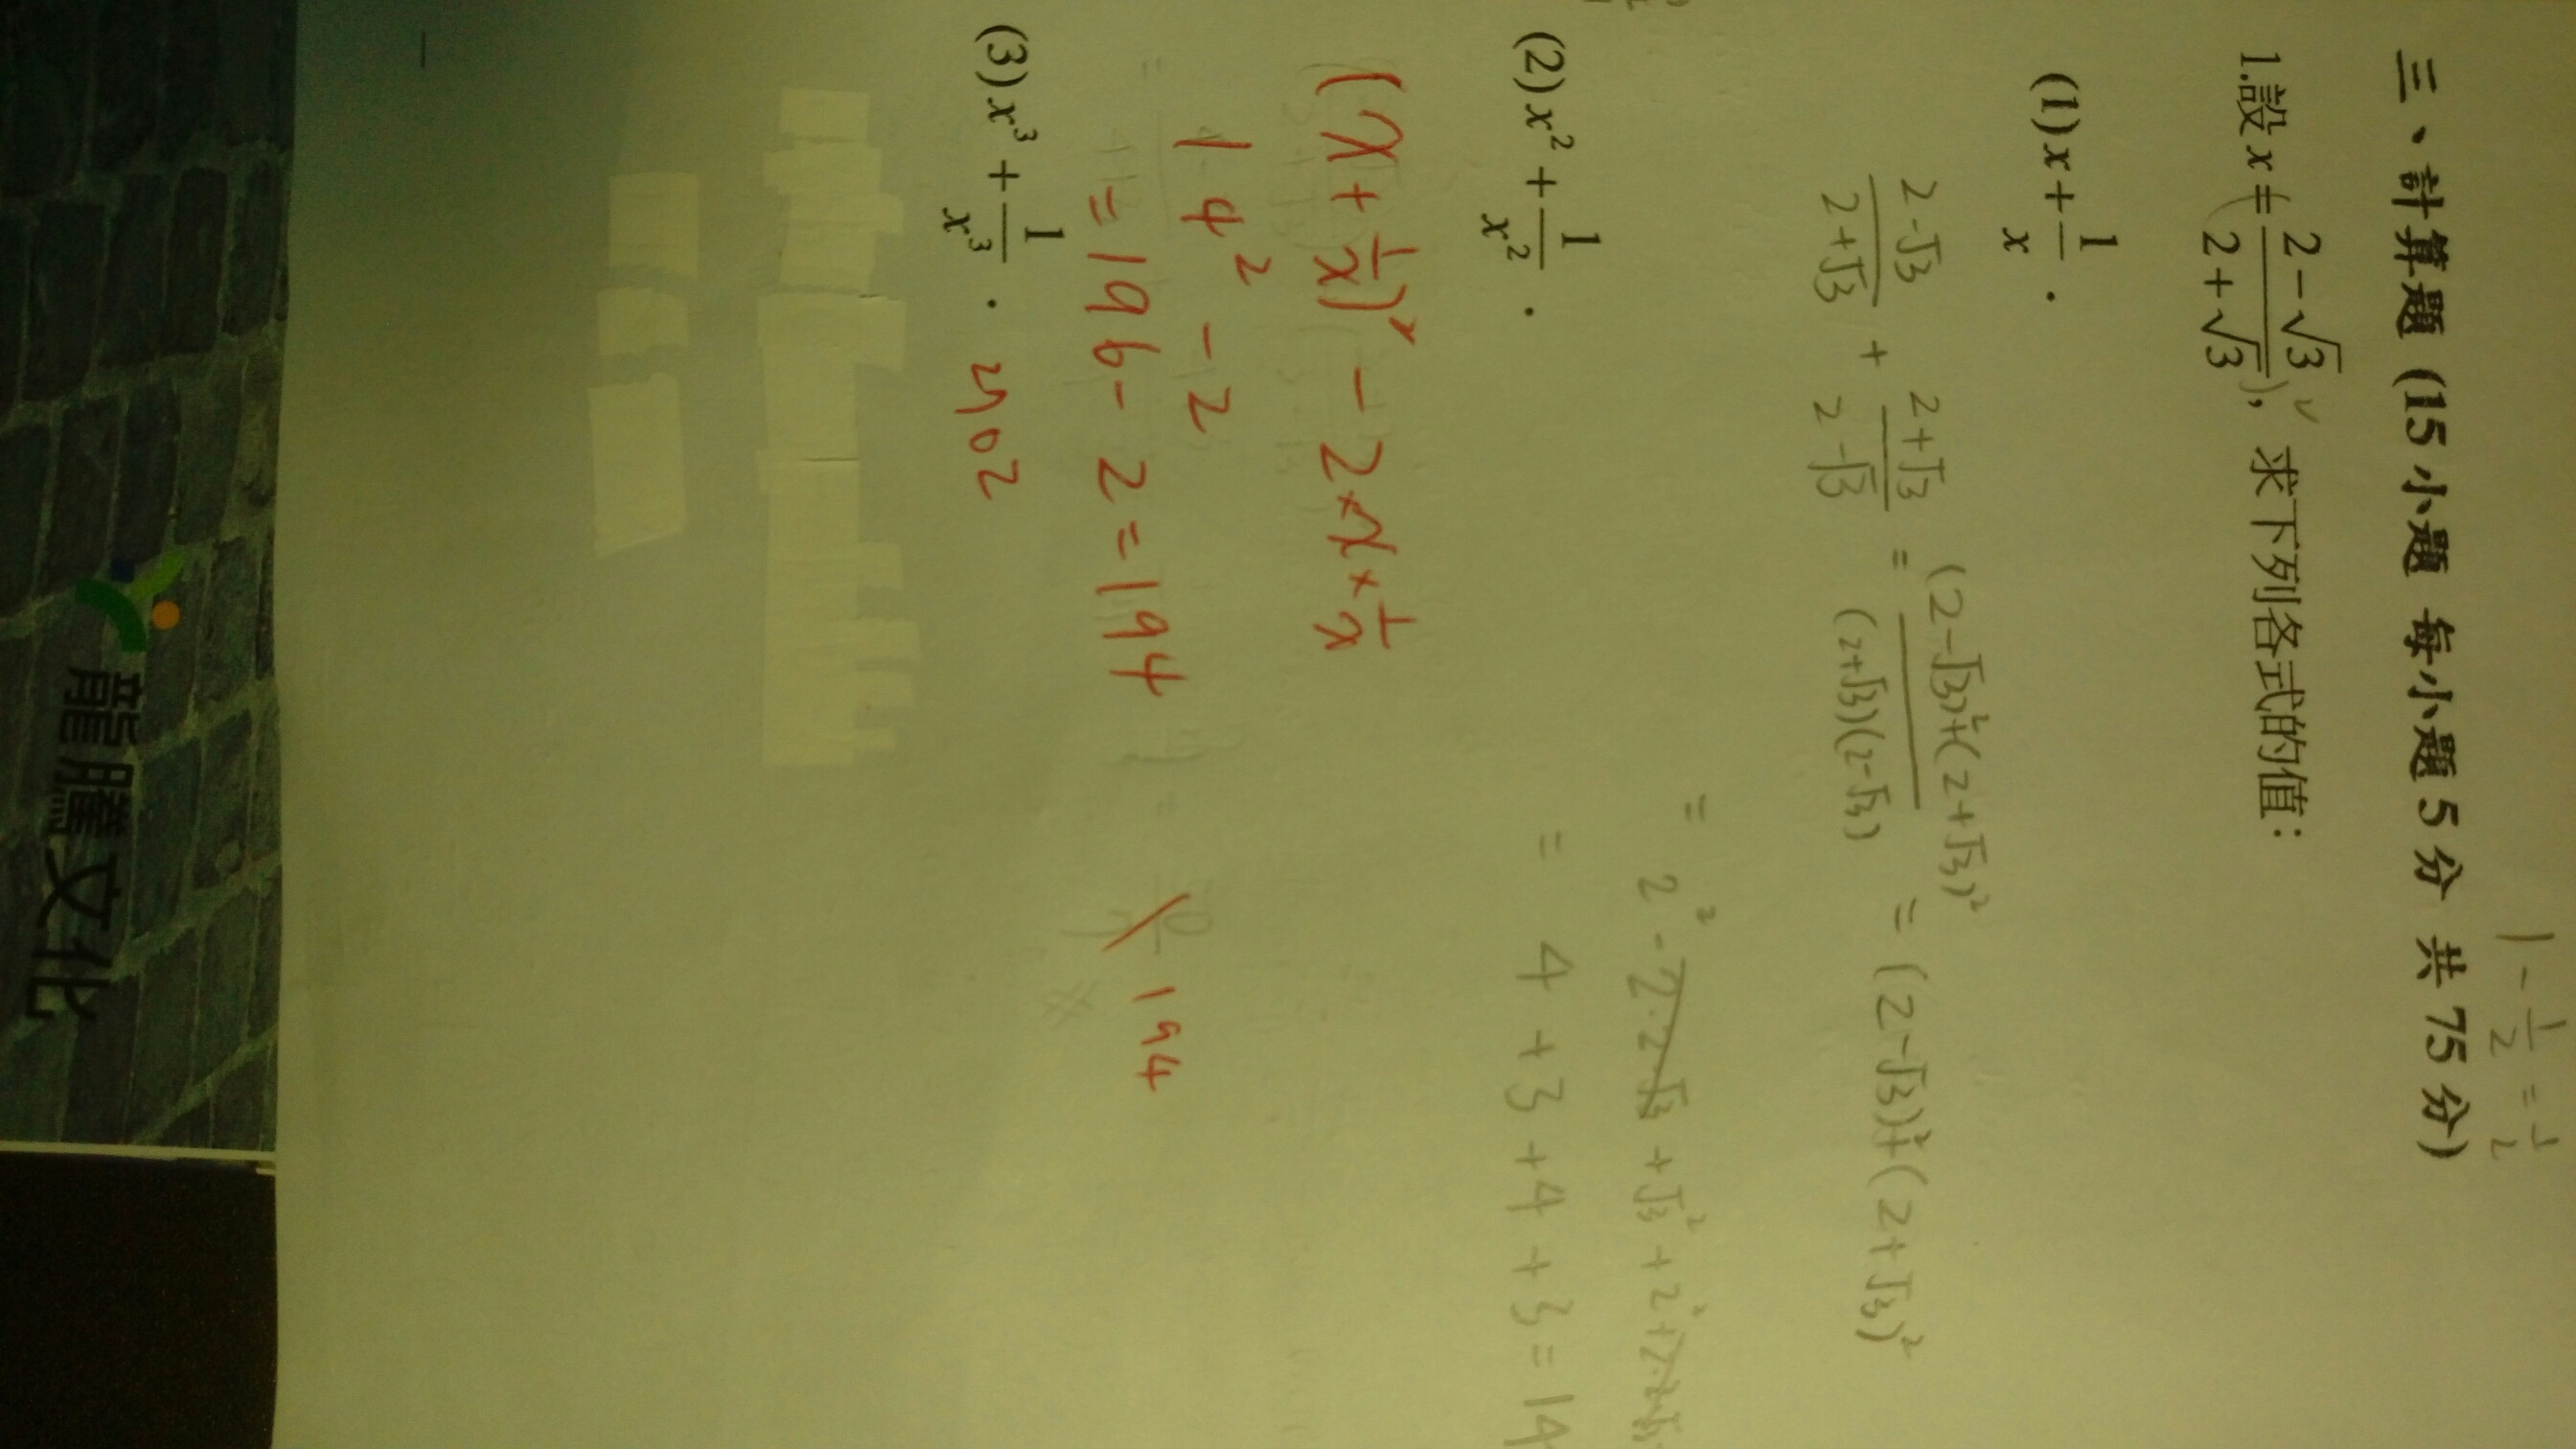 1 - 1/2 = 1/2
三、計算題 (15 小題 每小題 5 分 共 75 分)
1.設 x = (2 - √3)/(2 + √3), 求下列各式的值：
(1) x + 1/x .
(2-√3)/(2+√3) + (2+√3)/(2-√3) = ((2-√3)²+(2+√3)²)/((2+√3)(2-√3)) = (2-√3)²+(2+√3)²
= 2² - 2·2√3 + √3² + 2² + 2·2√3
= 4 + 3 + 4 + 3 = 14
(2) x² + 1/x² .
(x + 1/x)² - 2 × x × 1/x
14² - 2
= 196 - 2 = 194
194
(3) x³ + 1/x³ . 2702
龍騰文化